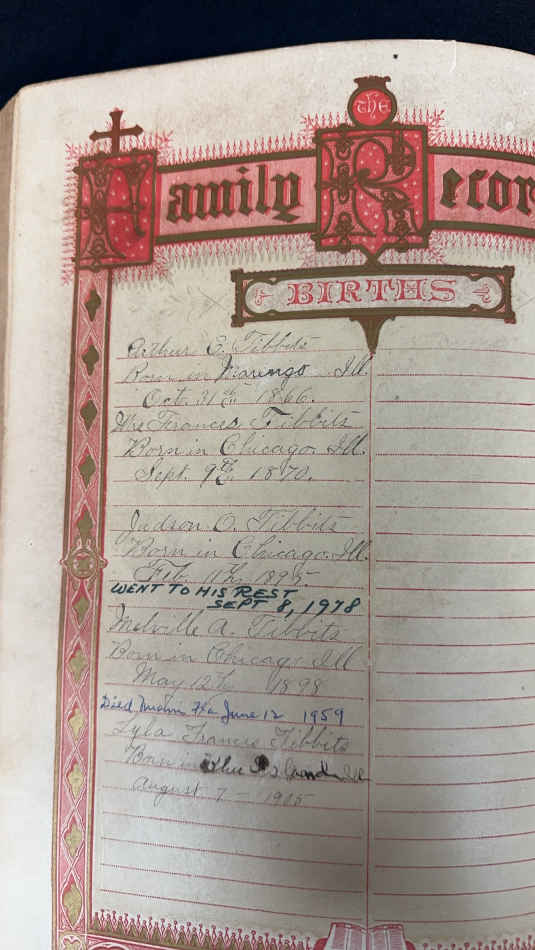 THE
Family Recor
BIRTHS
Arthur E. Tibbits
Born in Marengo Ill.
Oct. 31st 1866.
Mrs Frances Tibbits
Born in Chicago. Ill.
Sept. 9th 1870.
Judson O. Tibbits
Born in Chicago. Ill.
Feb. 11th 1895.
WENT TO HIS REST
SEPT 8, 1978
Melville A. Tibbits
Born in Chicago Ill
May 12th 1898
Died Miami Fla June 12 1959
Lyla Francis Tibbits
Born in Blue Island Ill
August 7 - 1905